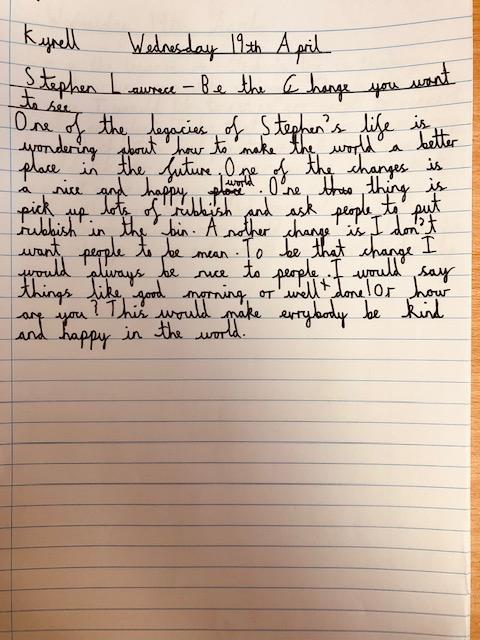 Kyrell Wednesday 19th April
Stephen Lawrece - Be the Change you want
to see
One of the legacies of Stephen's life is
wondering about how to make the world a better
place in the future One of the changes is
a nice and happy place world. One thuo thing is
pick up lots of rubbish and ask people to put
rubbish in the bin. Another change is I don't
want people to be mean. To be that change I
would always be nice to people. I would say
things like good morning or well done! Or how
are you? This would make evrybody be kind
and happy in the world.